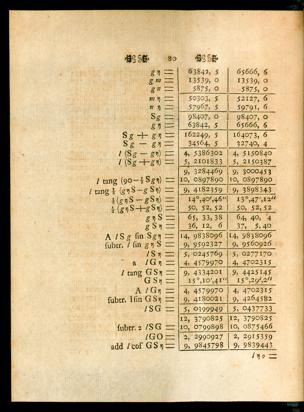 80
g η = 63842, 5 65666, 6
g m = 13539, 0 13539, 0
g n = 5875, 0 5875, 0
m η = 50303, 5 52127, 6
n η = 57967, 5 59791, 6
Sg = 98407, 0 98407, 0
g η = 63842, 5 65666, 6
Sg + gη = 162249, 5 164073, 6
Sg − gη = 34564, 5 32740, 4
l (Sg − gη) = 4, 5386302 4, 5150840
l (Sg + gη) = 5, 2101833 5, 2150387
9, 3284469 9, 3000453
l tang (90 − ½ Sgη) = 10, 0897890 10, 0897890
l tang ½ (gηS − gSη) = 9, 4182359 9, 3898343
½ (gηS − gSη) = 14°,40′,46″ 13°,47′,12″
½ (gηS + gSη) = 50, 52, 52 50, 52, 52
g η S = 65, 33, 38 64, 40, 4
g S η = 36, 12, 6 37, 5, 40
A l Sg sin Sgη = 14, 9838096 14, 9838096
subtr. l sin g η S = 9, 9592327 9, 9560926
l S η = 5, 0245769 5, 0277170
a l G η = 4, 4579970 4, 4702315
l tang G S η = 9, 4334201 9, 4425145
G S η = 15°,10′,41″ 15°,29′,2″
A l G η = 4, 4579970 4, 4702315
subtr. l sin G S η = 9, 4180021 9, 4264582
l S G = 5, 0399949 5, 0437733
12, 3790825 12, 3790825
subtr. 2 l S G = 10, 0799898 10, 0875466
l G O = 2, 2990927 2, 2915359
add l cos G S η = 9, 9845798 9, 9839443